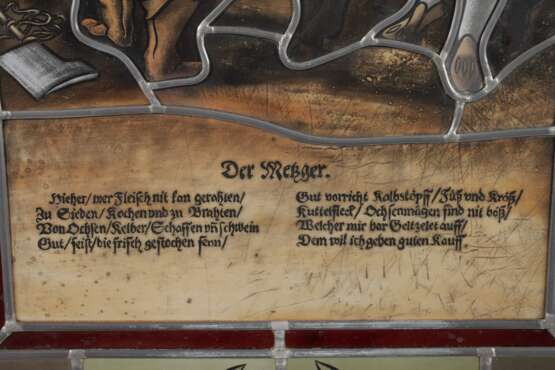 Der Metzger.
Hieher/ wer Fleisch nit kan gerahten/
Zu Sieden/ Kochen und zu Brahten/
Von Ochsen/ Kelber/ Schaffen uñ schwein
Gut/ feist/ die frisch gestochen seyn/
Gut vorricht Kalbsköpff/ Füß und Kröß/
Kuttelfleck/ Ochsenmägen sind nit böß/
Welcher mir bar Geltzelet auff/
Dem wil ich geben guten Kauff.